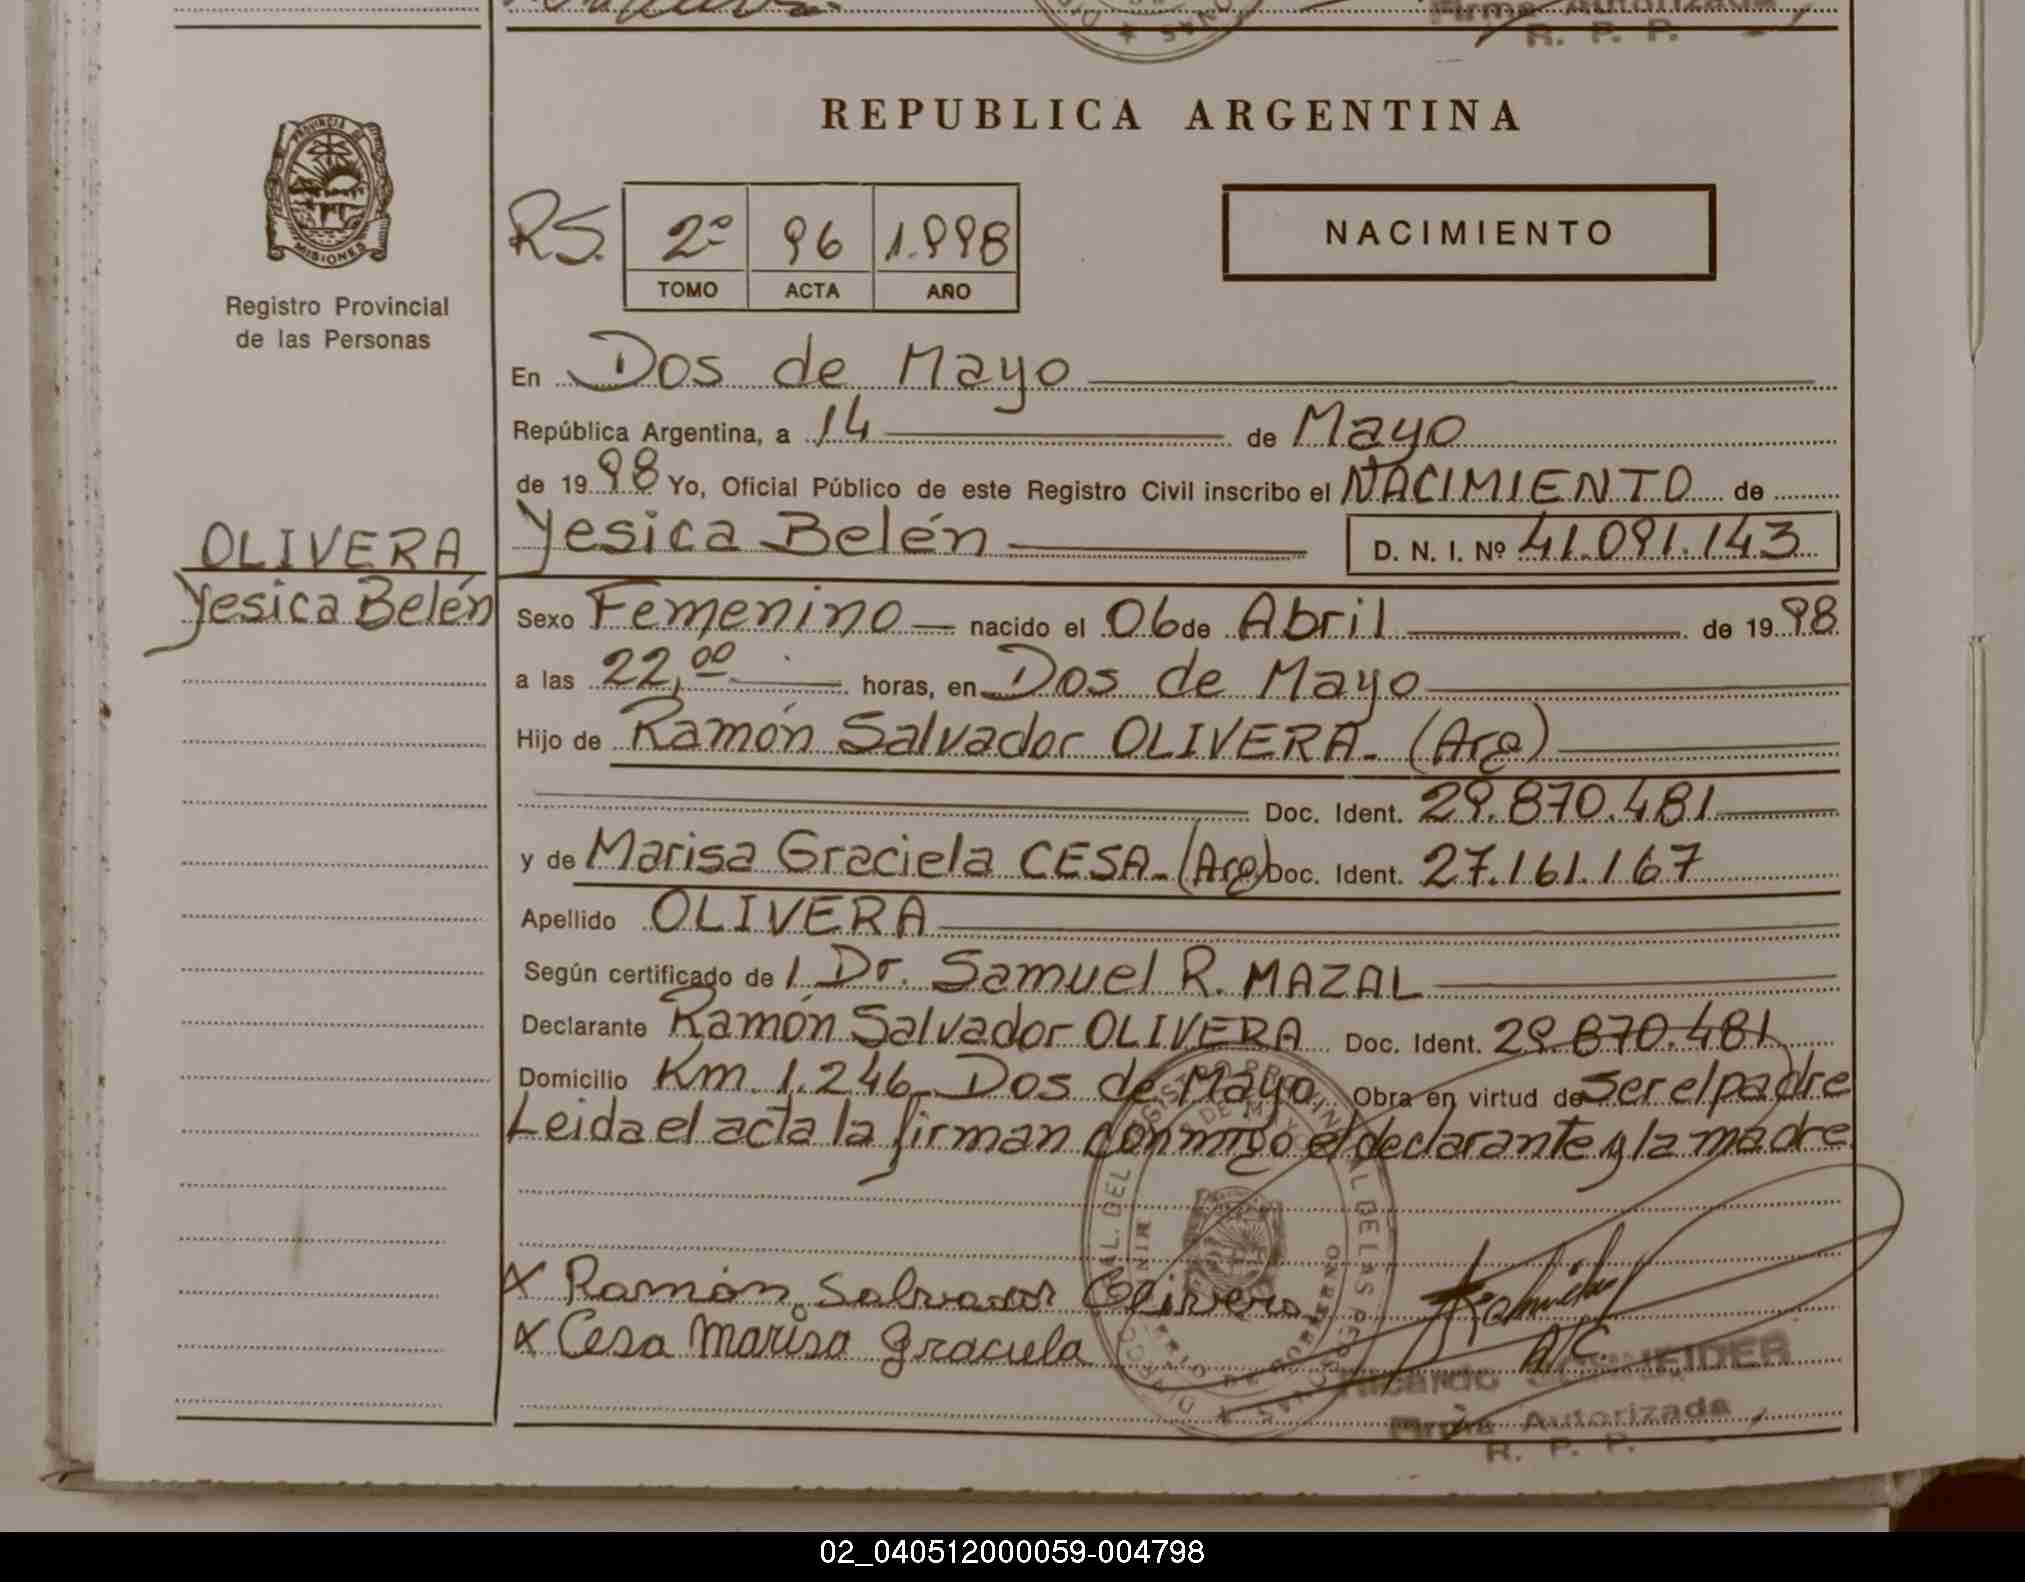 Firma Autorizada
R. P. P.
REPUBLICA ARGENTINA
PROVINCIA DE
MISIONES
Registro Provincial
de las Personas
RS. 2º 96 1.998
TOMO ACTA AÑO
NACIMIENTO
En Dos de Mayo
República Argentina, a 14 de Mayo
de 1998 Yo, Oficial Público de este Registro Civil inscribo el NACIMIENTO de
Yesica Belén D. N. I. Nº 41.091.143
OLIVERA
Yesica Belén
Sexo Femenino nacido el 06 de Abril de 1998
a las 22,00 horas, en Dos de Mayo
Hijo de Ramón Salvador OLIVERA. (Arg)
Doc. Ident. 29.870.481
y de Marisa Graciela CESA. (Arg) Doc. Ident. 27.161.167
Apellido OLIVERA
Según certificado de l Dr. Samuel R. MAZAL
Declarante Ramón Salvador OLIVERA Doc. Ident. 29.870.481
Domicilio Km. 1.246 Dos de Mayo Obra en virtud de ser el padre
Leida el acta la firman conmigo el declarante y la madre
x Ramón Salvador Olivera
x Cesa Marisa Graciela
A/C.
Ricardo SCHNEIDER
Firma Autorizada
R. P. P.
02_040512000059-004798